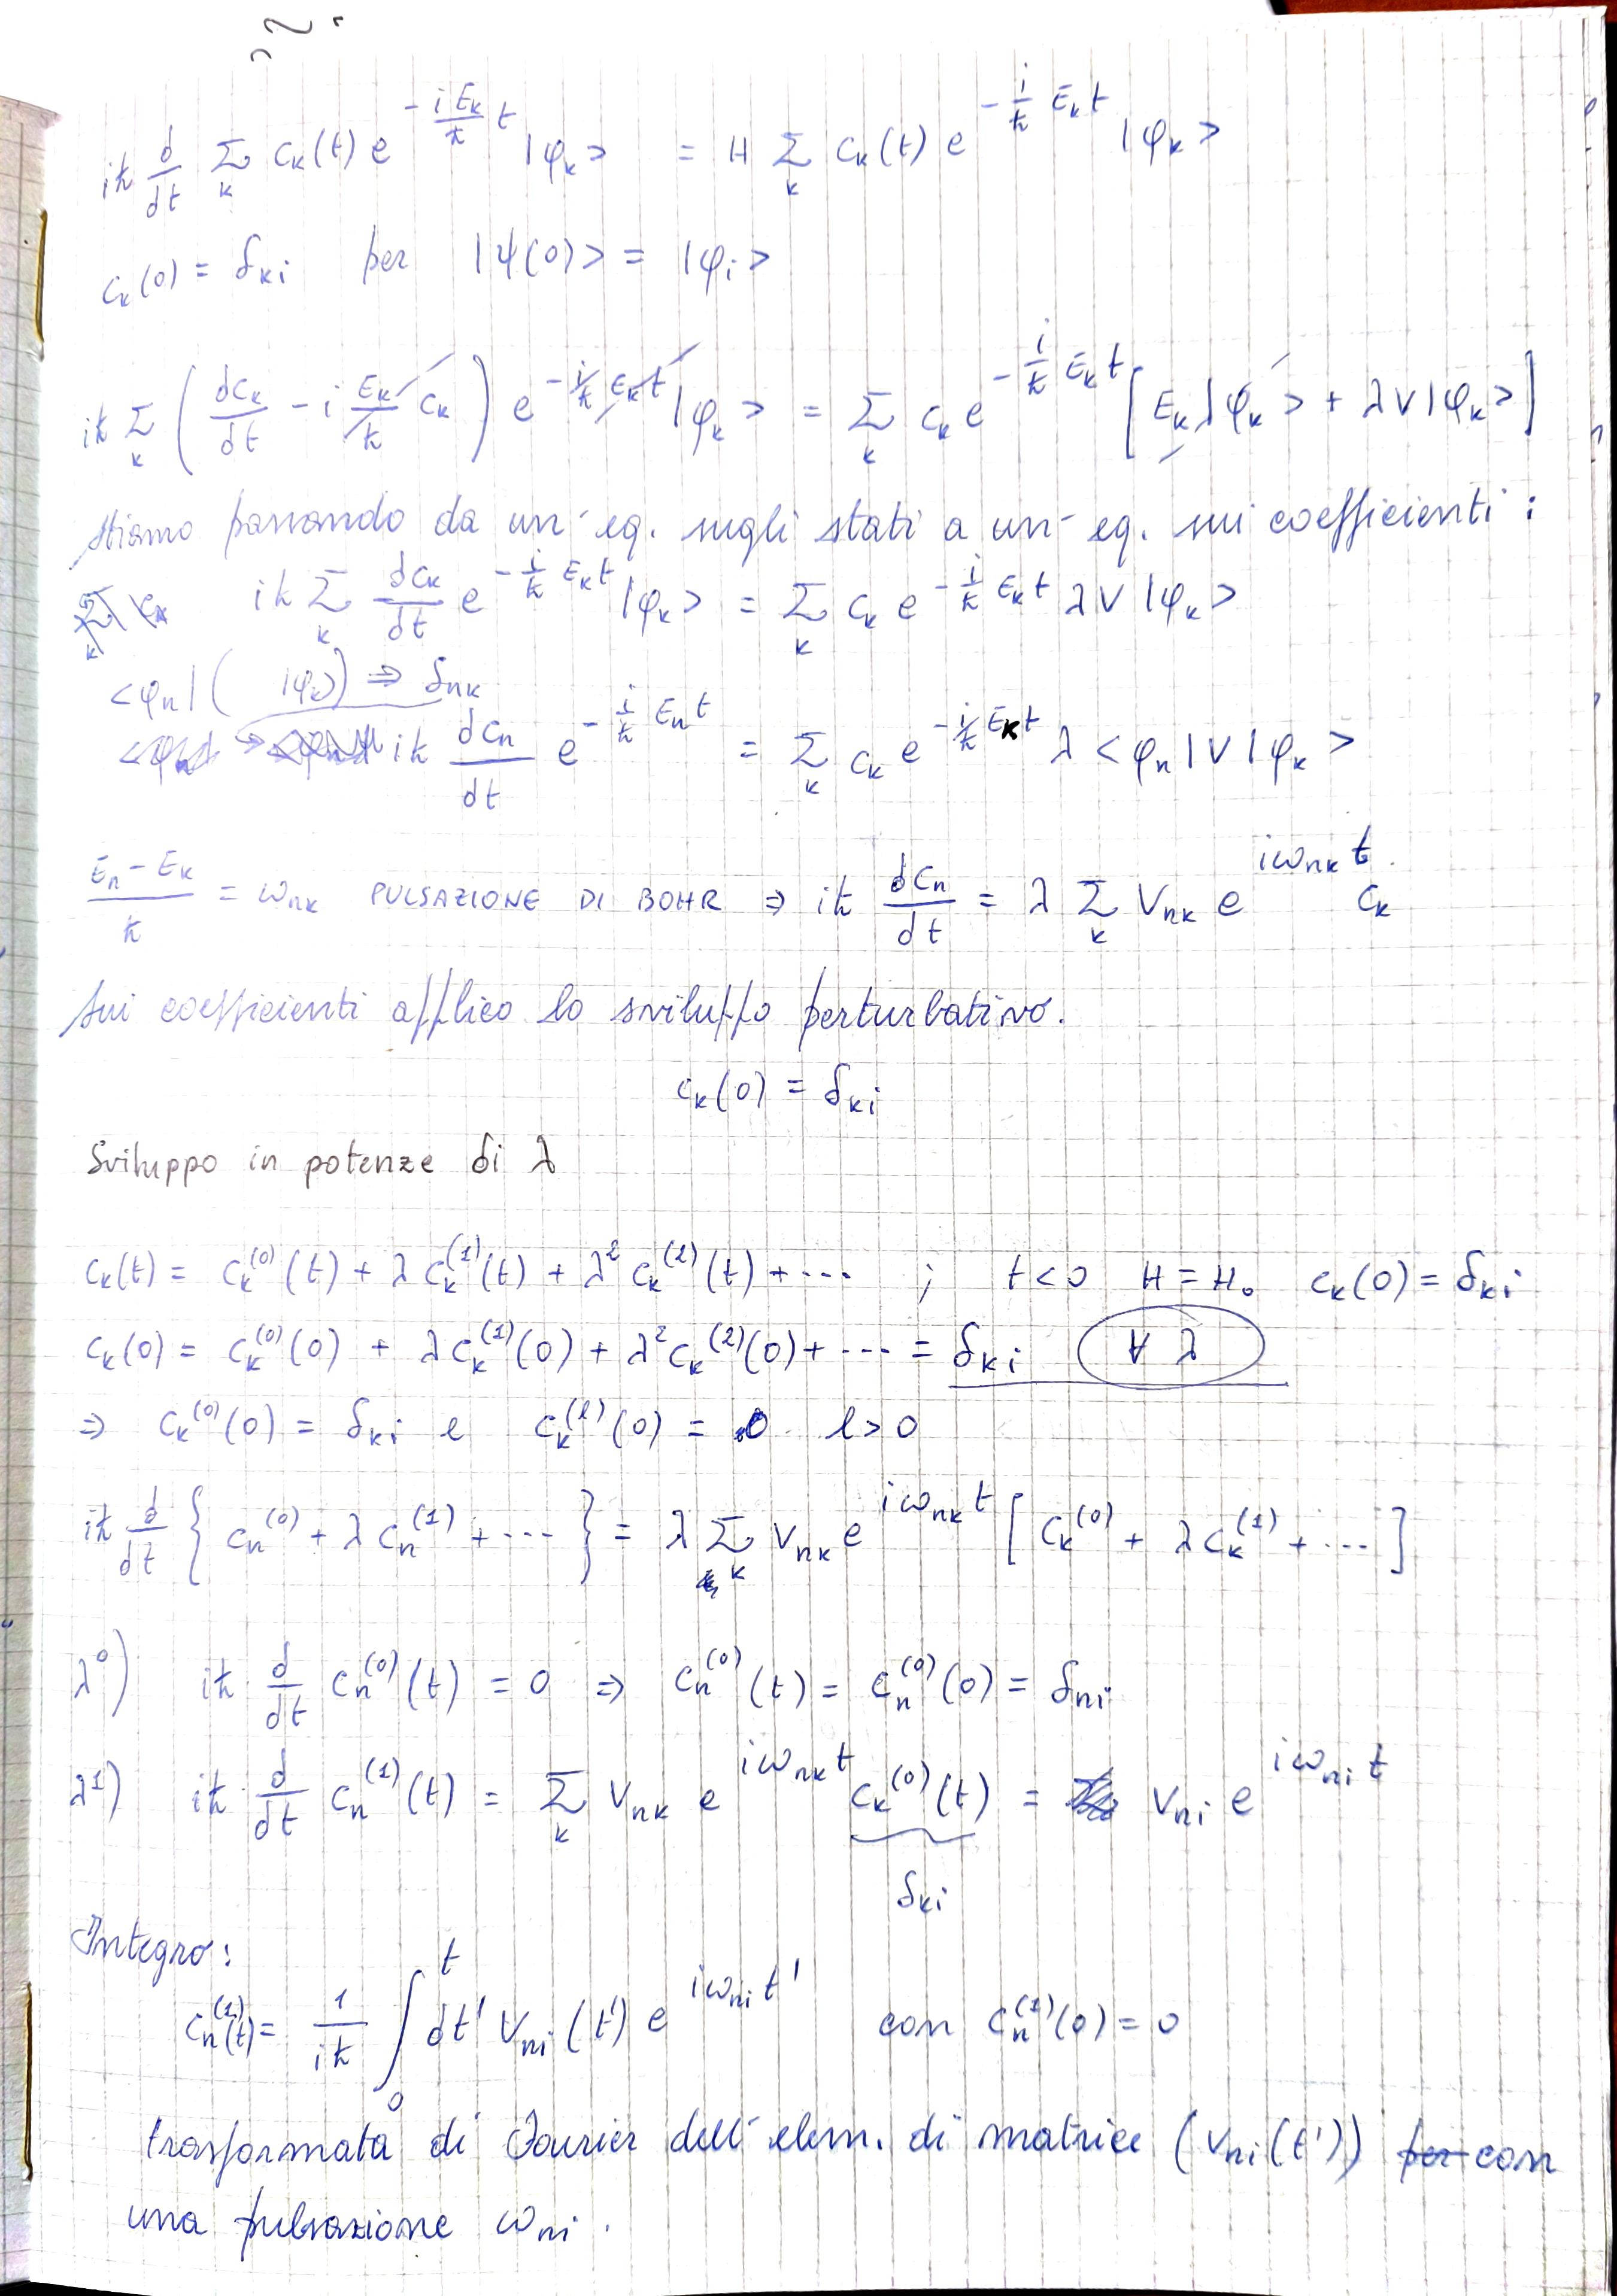 iħ d/dt Σ_k c_k(t) e^{-iE_k/ħ t} |φ_k> = H Σ_k c_k(t) e^{-i/ħ E_k t} |φ_k>
c_k(0) = δ_ki per |ψ(0)> = |φ_i>
iħ Σ_k ( dc_k/dt - i E_k/ħ c_k ) e^{-i/ħ E_k t} |φ_k> = Σ_k c_k e^{-i/ħ E_k t} [ E_k |φ_k> + λV|φ_k> ]
Stiamo passando da un'eq. sugli stati a un'eq. sui coefficienti:
iħ Σ_k dc_k/dt e^{-i/ħ E_k t} |φ_k> = Σ_k c_k e^{-i/ħ E_k t} λV |φ_k>
<φ_n| ( |φ_k>) ⇒ δ_nk
iħ dc_n/dt e^{-i/ħ E_n t} = Σ_k c_k e^{-i/ħ E_k t} λ <φ_n|V|φ_k>
(E_n - E_k)/ħ = ω_nk PULSAZIONE DI BOHR ⇒ iħ dc_n/dt = λ Σ_k V_nk e^{iω_nk t} c_k
Sui coefficienti applico lo sviluppo perturbativo.
c_k(0) = δ_ki
Sviluppo in potenze di λ
c_k(t) = c_k^(0)(t) + λ c_k^(1)(t) + λ² c_k^(2)(t) + ··· ; t<0 H = H_0 c_k(0) = δ_ki
c_k(0) = c_k^(0)(0) + λ c_k^(1)(0) + λ² c_k^(2)(0) + ··· = δ_ki ∀ λ
⇒ c_k^(0)(0) = δ_ki e c_k^(l)(0) = 0 l>0
iħ d/dt { c_n^(0) + λ c_n^(1) + ··· } = λ Σ_k V_nk e^{iω_nk t} [ c_k^(0) + λ c_k^(1) + ··· ]
λ⁰) iħ d/dt c_n^(0)(t) = 0 ⇒ c_n^(0)(t) = c_n^(0)(0) = δ_ni
λ¹) iħ d/dt c_n^(1)(t) = Σ_k V_nk e^{iω_nk t} c_k^(0)(t) = V_ni e^{iω_ni t}
δ_ki
Integro:
c_n^(1)(t) = 1/iħ ∫_0^t dt' V_ni(t') e^{iω_ni t'} con c_n^(1)(0) = 0
trasformata di Fourier dell'elem. di matrice (V_ni(t')) per con
una pulsazione ω_ni.